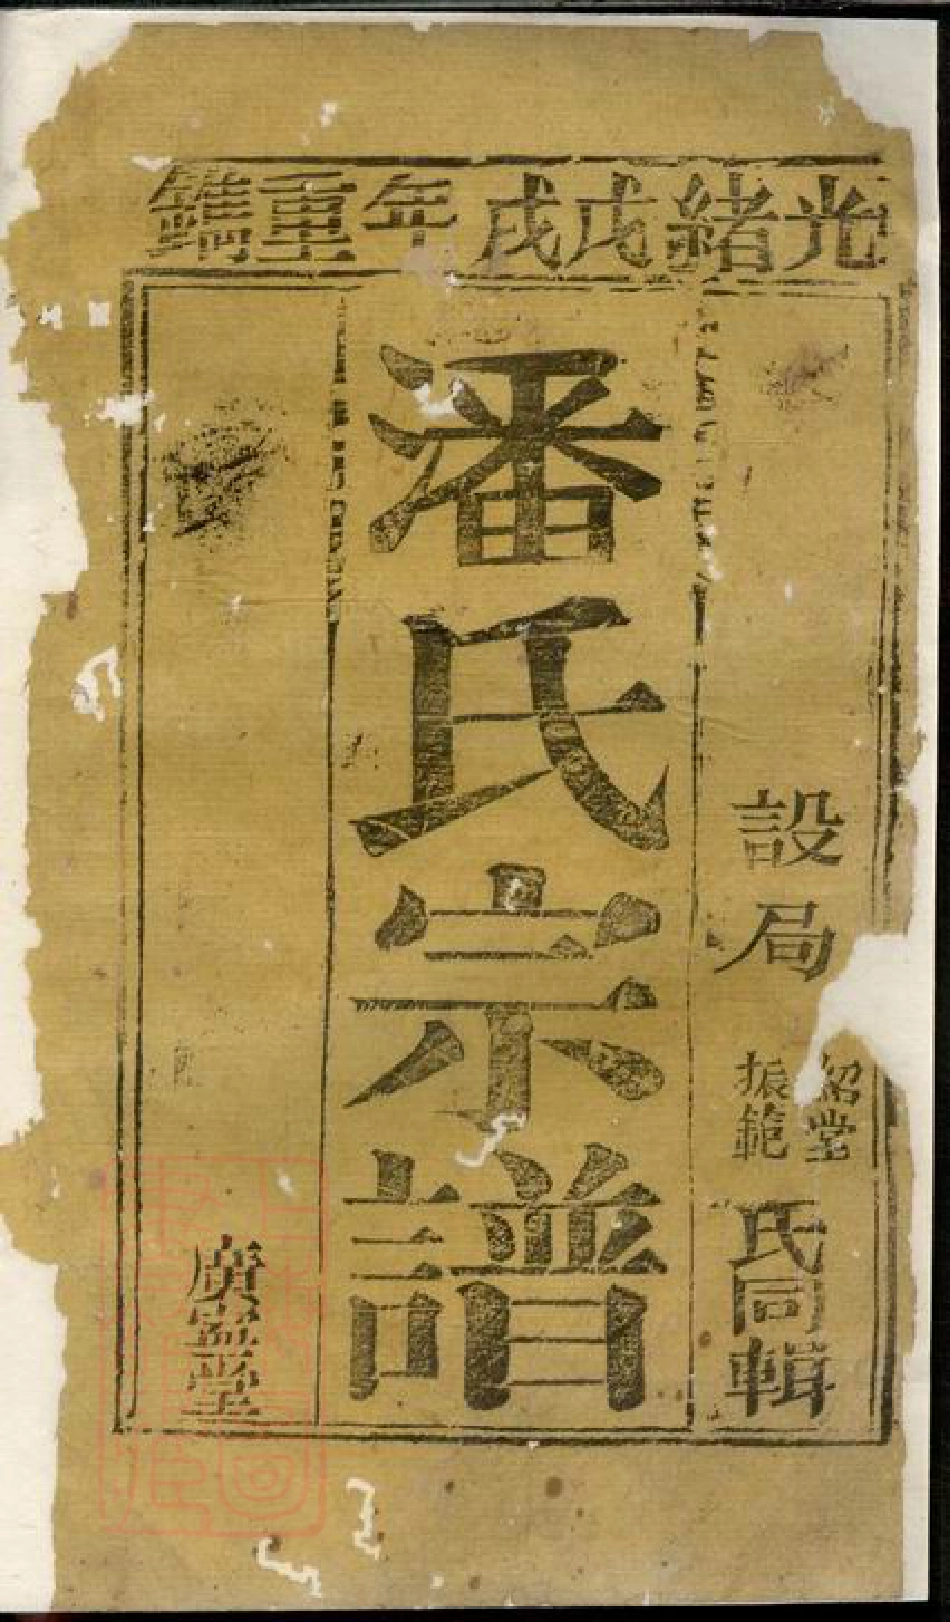 光緒戊戌年重鐫
設局
紹堂
振範
氏同輯
潘氏宗譜
堂